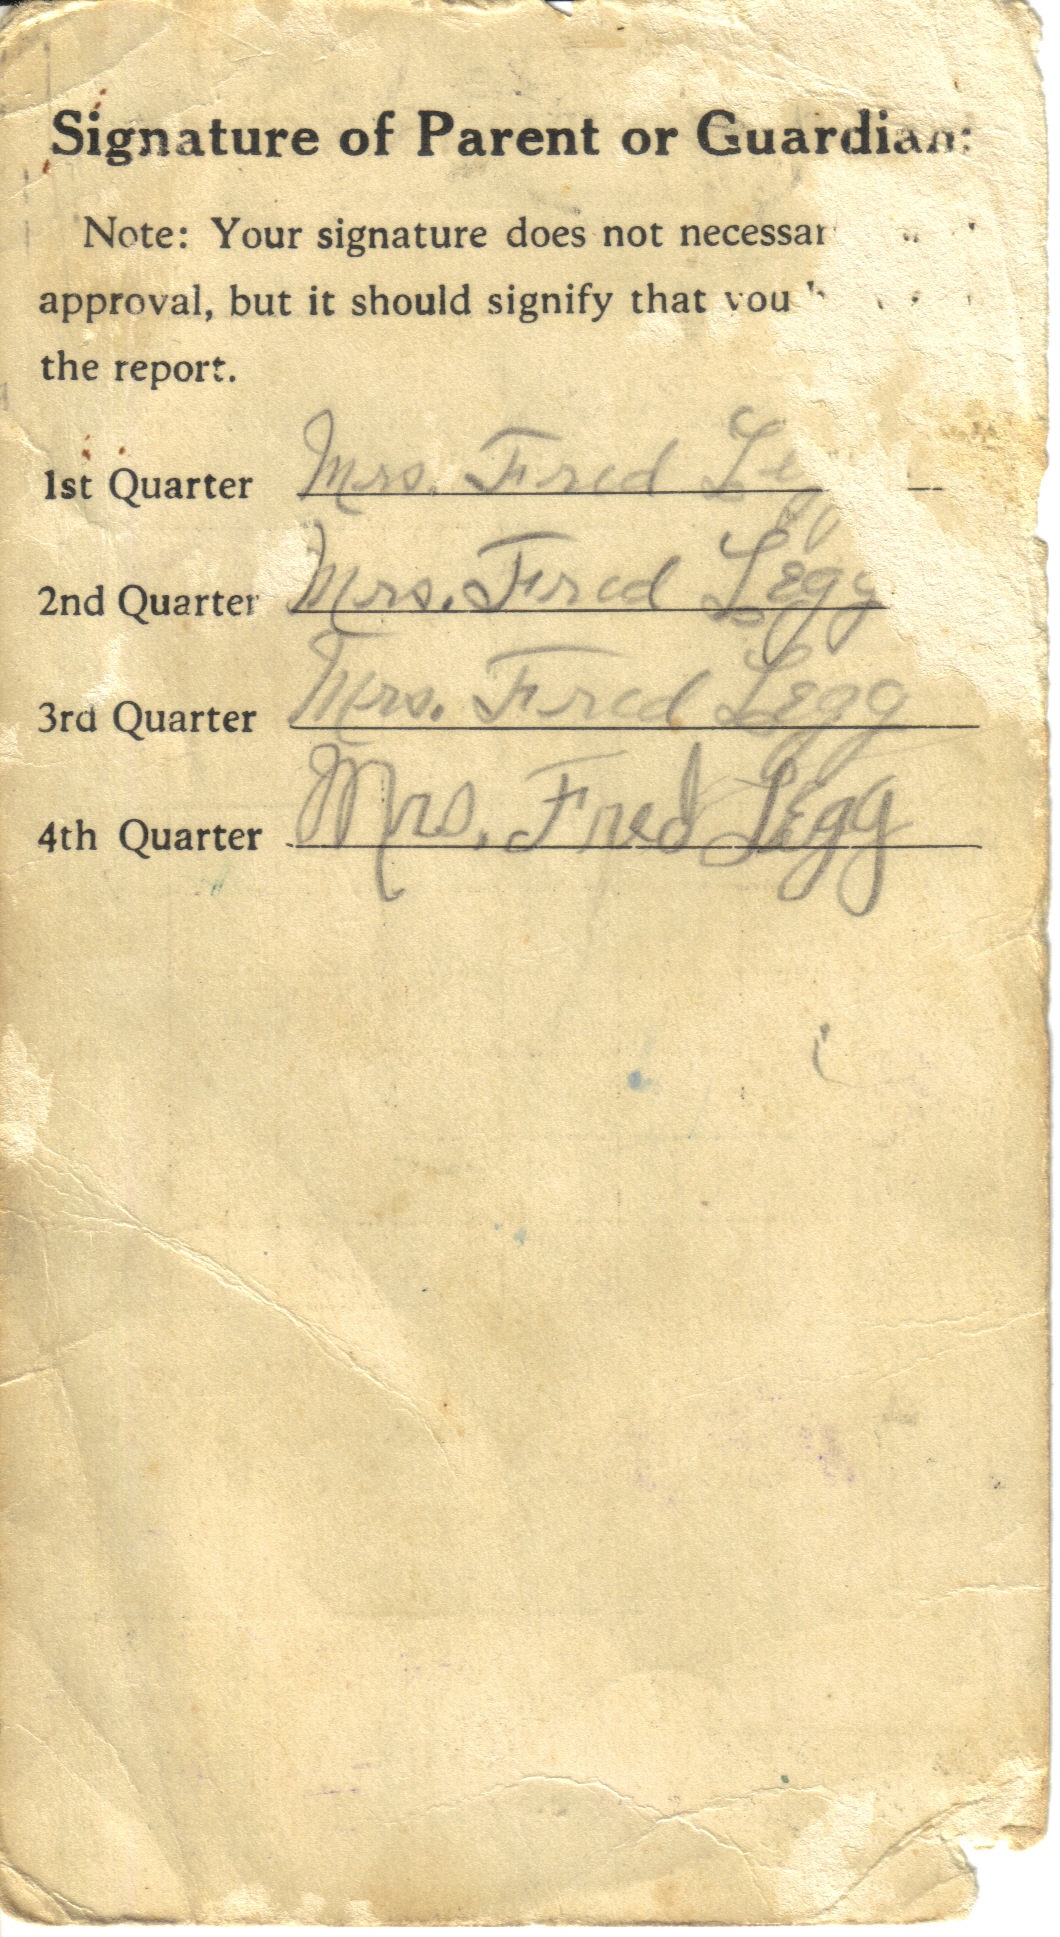 Signature of Parent or Guardian:
Note: Your signature does not
approval, but it should signify that you
the report.
1st Quarter Mrs. Fred Legg
2nd Quarter Mrs. Fred Legg
3rd Quarter Mrs. Fred Legg
4th Quarter Mrs. Fred Legg